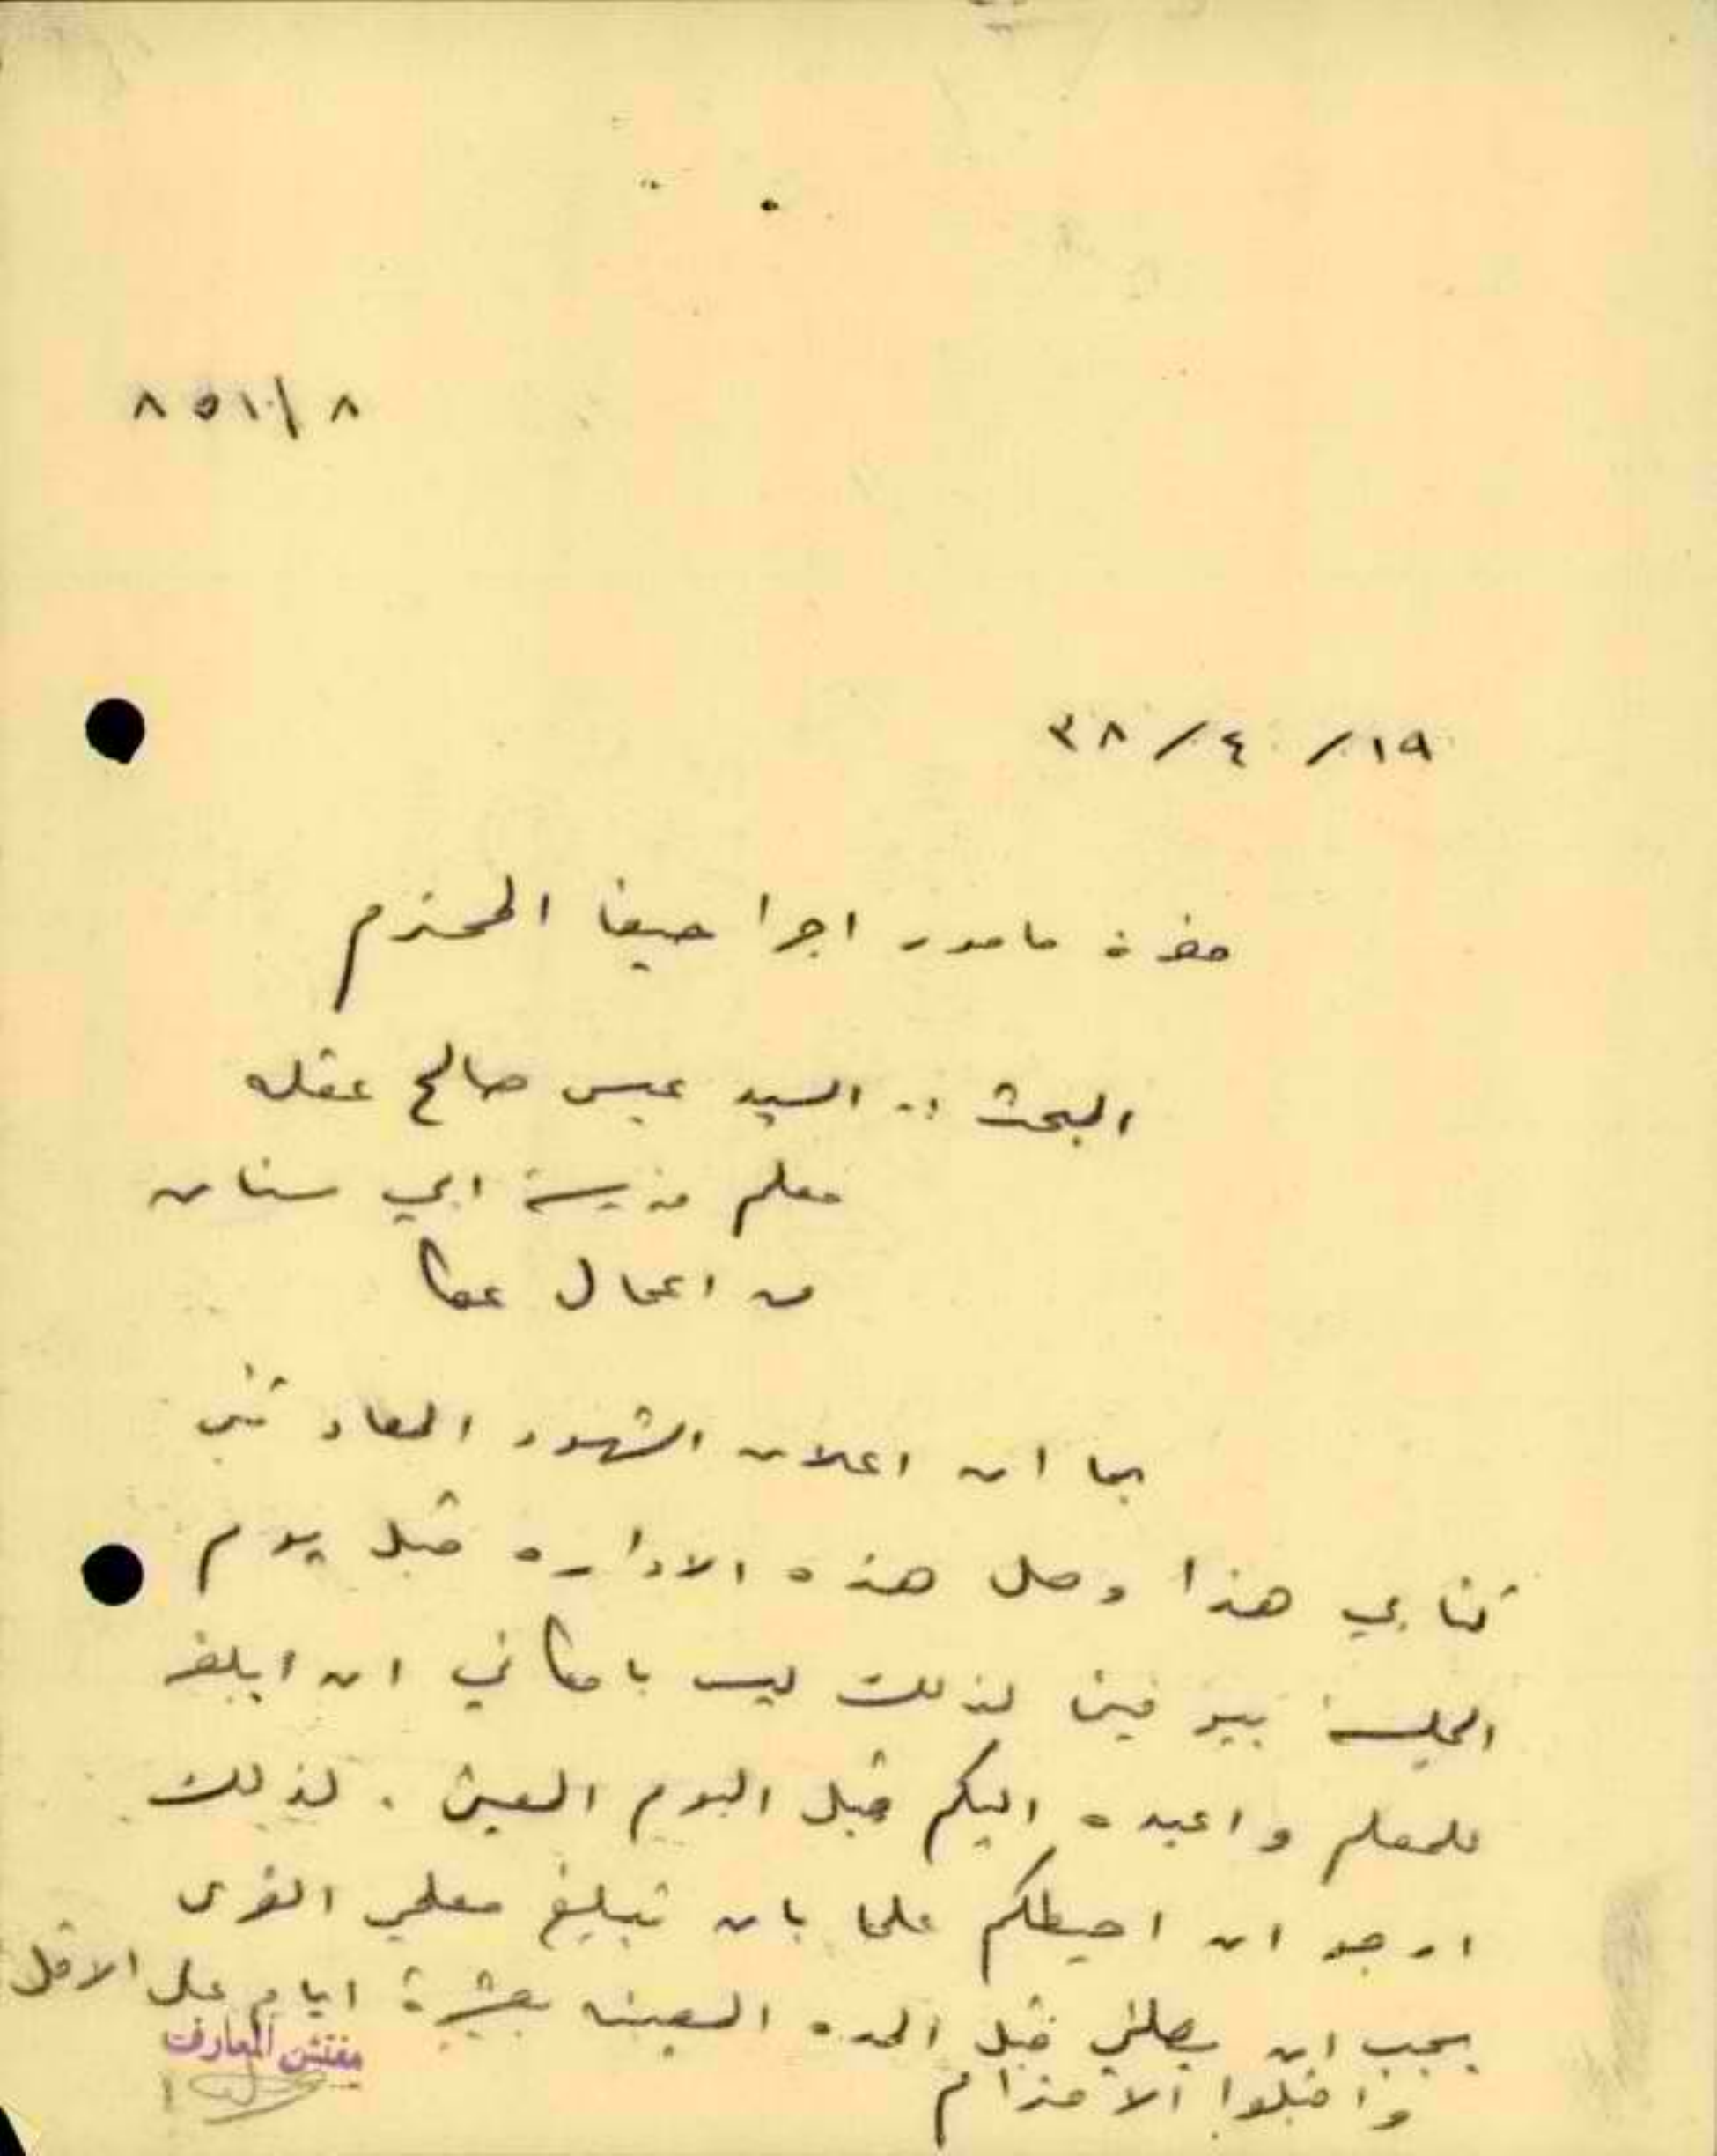 ٨/٨٥١
١٩/ ٤ /٣٨
حضرة مامور اجرا حيفا المحترم
البحث :- السيد عيسى صالح عقله
معلم مدرسة ابي سنان
من اعمال عكا
بما ان اعلان الشهود المعاد تبي
كتابي هذا وصل هذه الاداره قبل يوم
الجلسة بيومين لذلك ليس بامكاني ان ابلغه
للمعلم واعيده اليكم قبل اليوم المعين . لذلك
ارجو ان احيطكم علما بان تبليغ معلمي القرى
يجب ان يصلني قبل المده المعينه بعشرة ايام على الاقل
واقبلوا الاحترام
مفتش المعارف